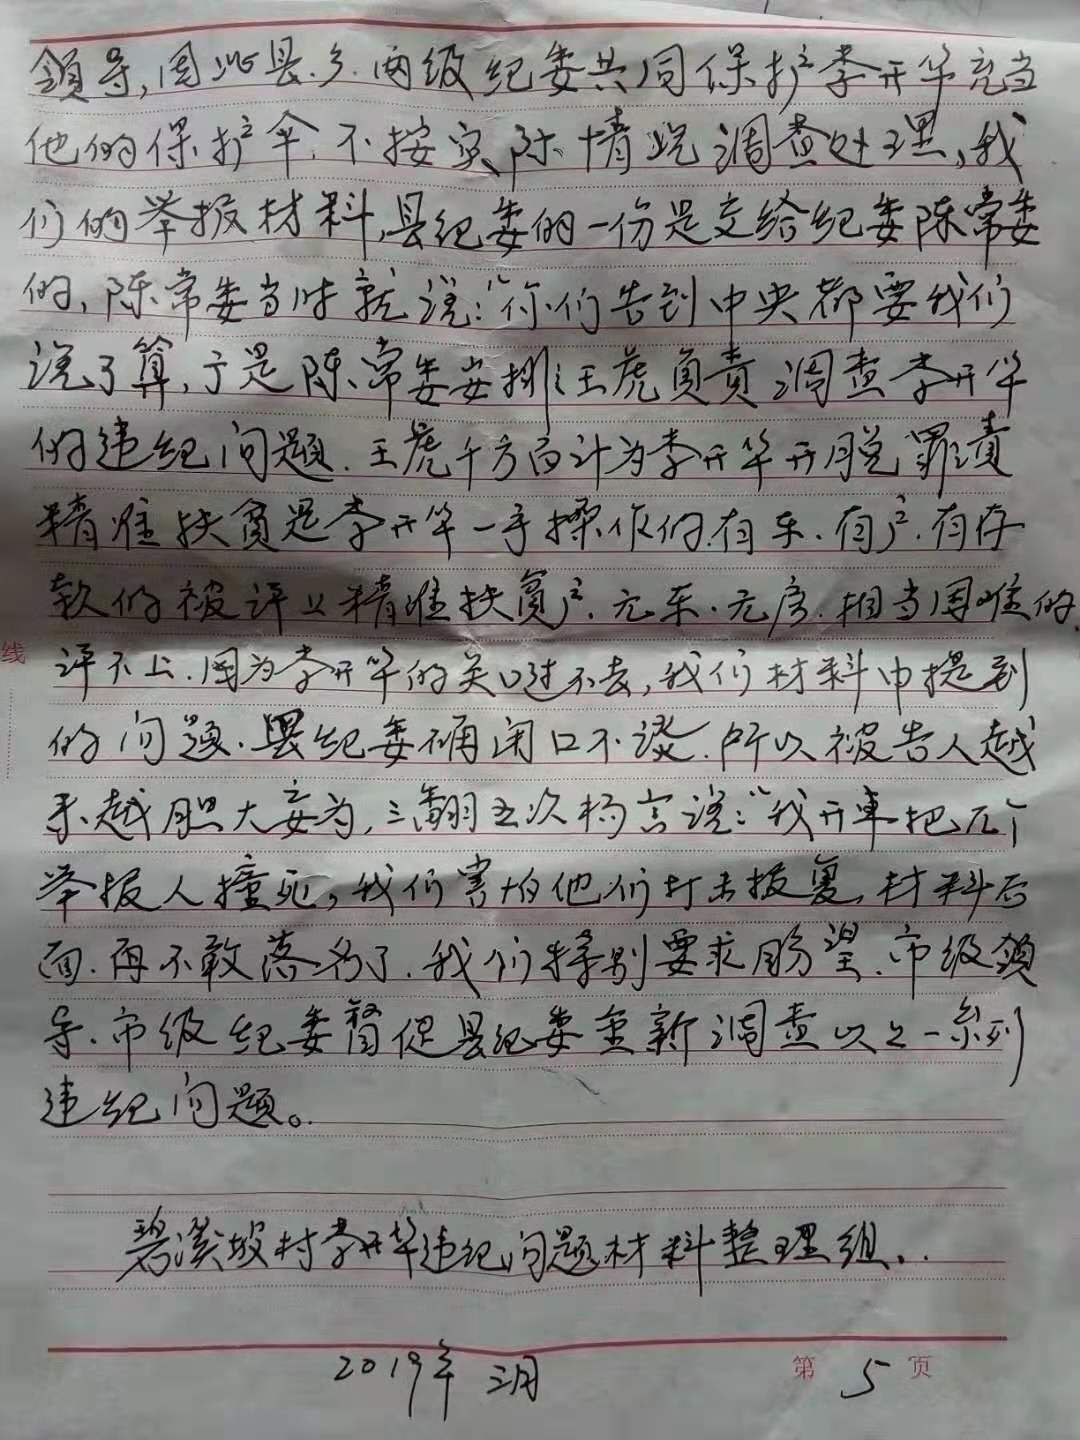 领导,因此县.乡.两级纪委共同保护李开华充当
他的保护伞.不按实际情况调查处理,我
们的举报材料,县纪委的一份是交给纪委陈常委
的,陈常委当时就说:“你们告到中央都要我们
说了算,于是陈常委安排王虎负责调查李开华
的违纪问题.王虎千方百计为李开华开脱罪责
精准扶贫是李开华一手操作的.有车.有户.有存
款的被评上精准扶贫户.无车.无房.相当困难的.
评不上.因为李开华的关口过不去,我们材料中提到
的问题.县纪委确闭口不谈.所以被告人越
来越胆大妄为,三翻五次扬言说:“我开車把几个
举报人撞死,我们害怕他们打击报复,材料后
面.再不敢落名了.我们特别要求盼望.市级领
导.市级纪委督促县纪委重新调查以上一系列
违纪问题。
碧溪坡村李开华违纪问题材料整理组..
2019年三月
第 5 页
线